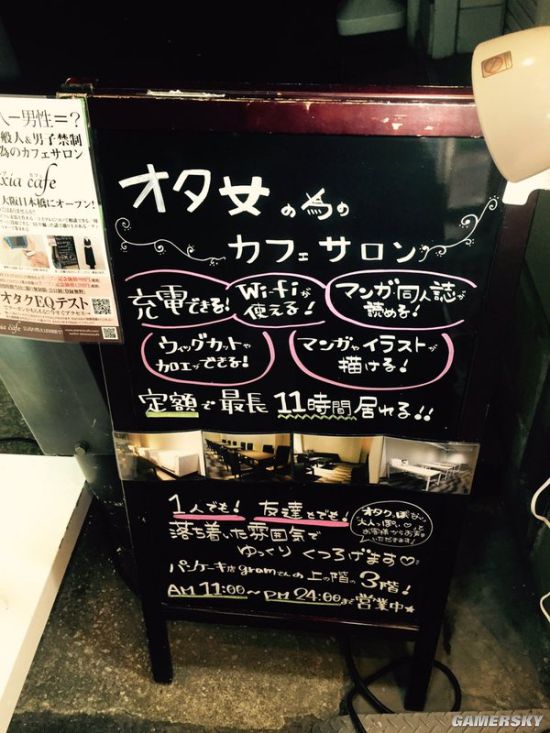 人ー男性=?
般人&男子禁制
為のカフェサロン
xia cafe
大阪日本橋にオープン!
オタクEQテスト
オタ女の為の
カフェサロン
充電できる!
Wi-Fiが
使える!
マンガ・同人誌が
読める!
ウィッグカットや
加工ができる!
マンガやイラストが
描ける!
定額で最長 11時間居れる!!
1人でも! 友達とでも!
落ち着いた雰囲気で
ゆっくり くつろげます♡
オタクっぽくない
大人っぽい♡と
お客様からお声
いただきます!
パンケーキ店gramさんの上の階の3階!
AM 11:00~PM 24:00まで営業中★
GAMERSKY